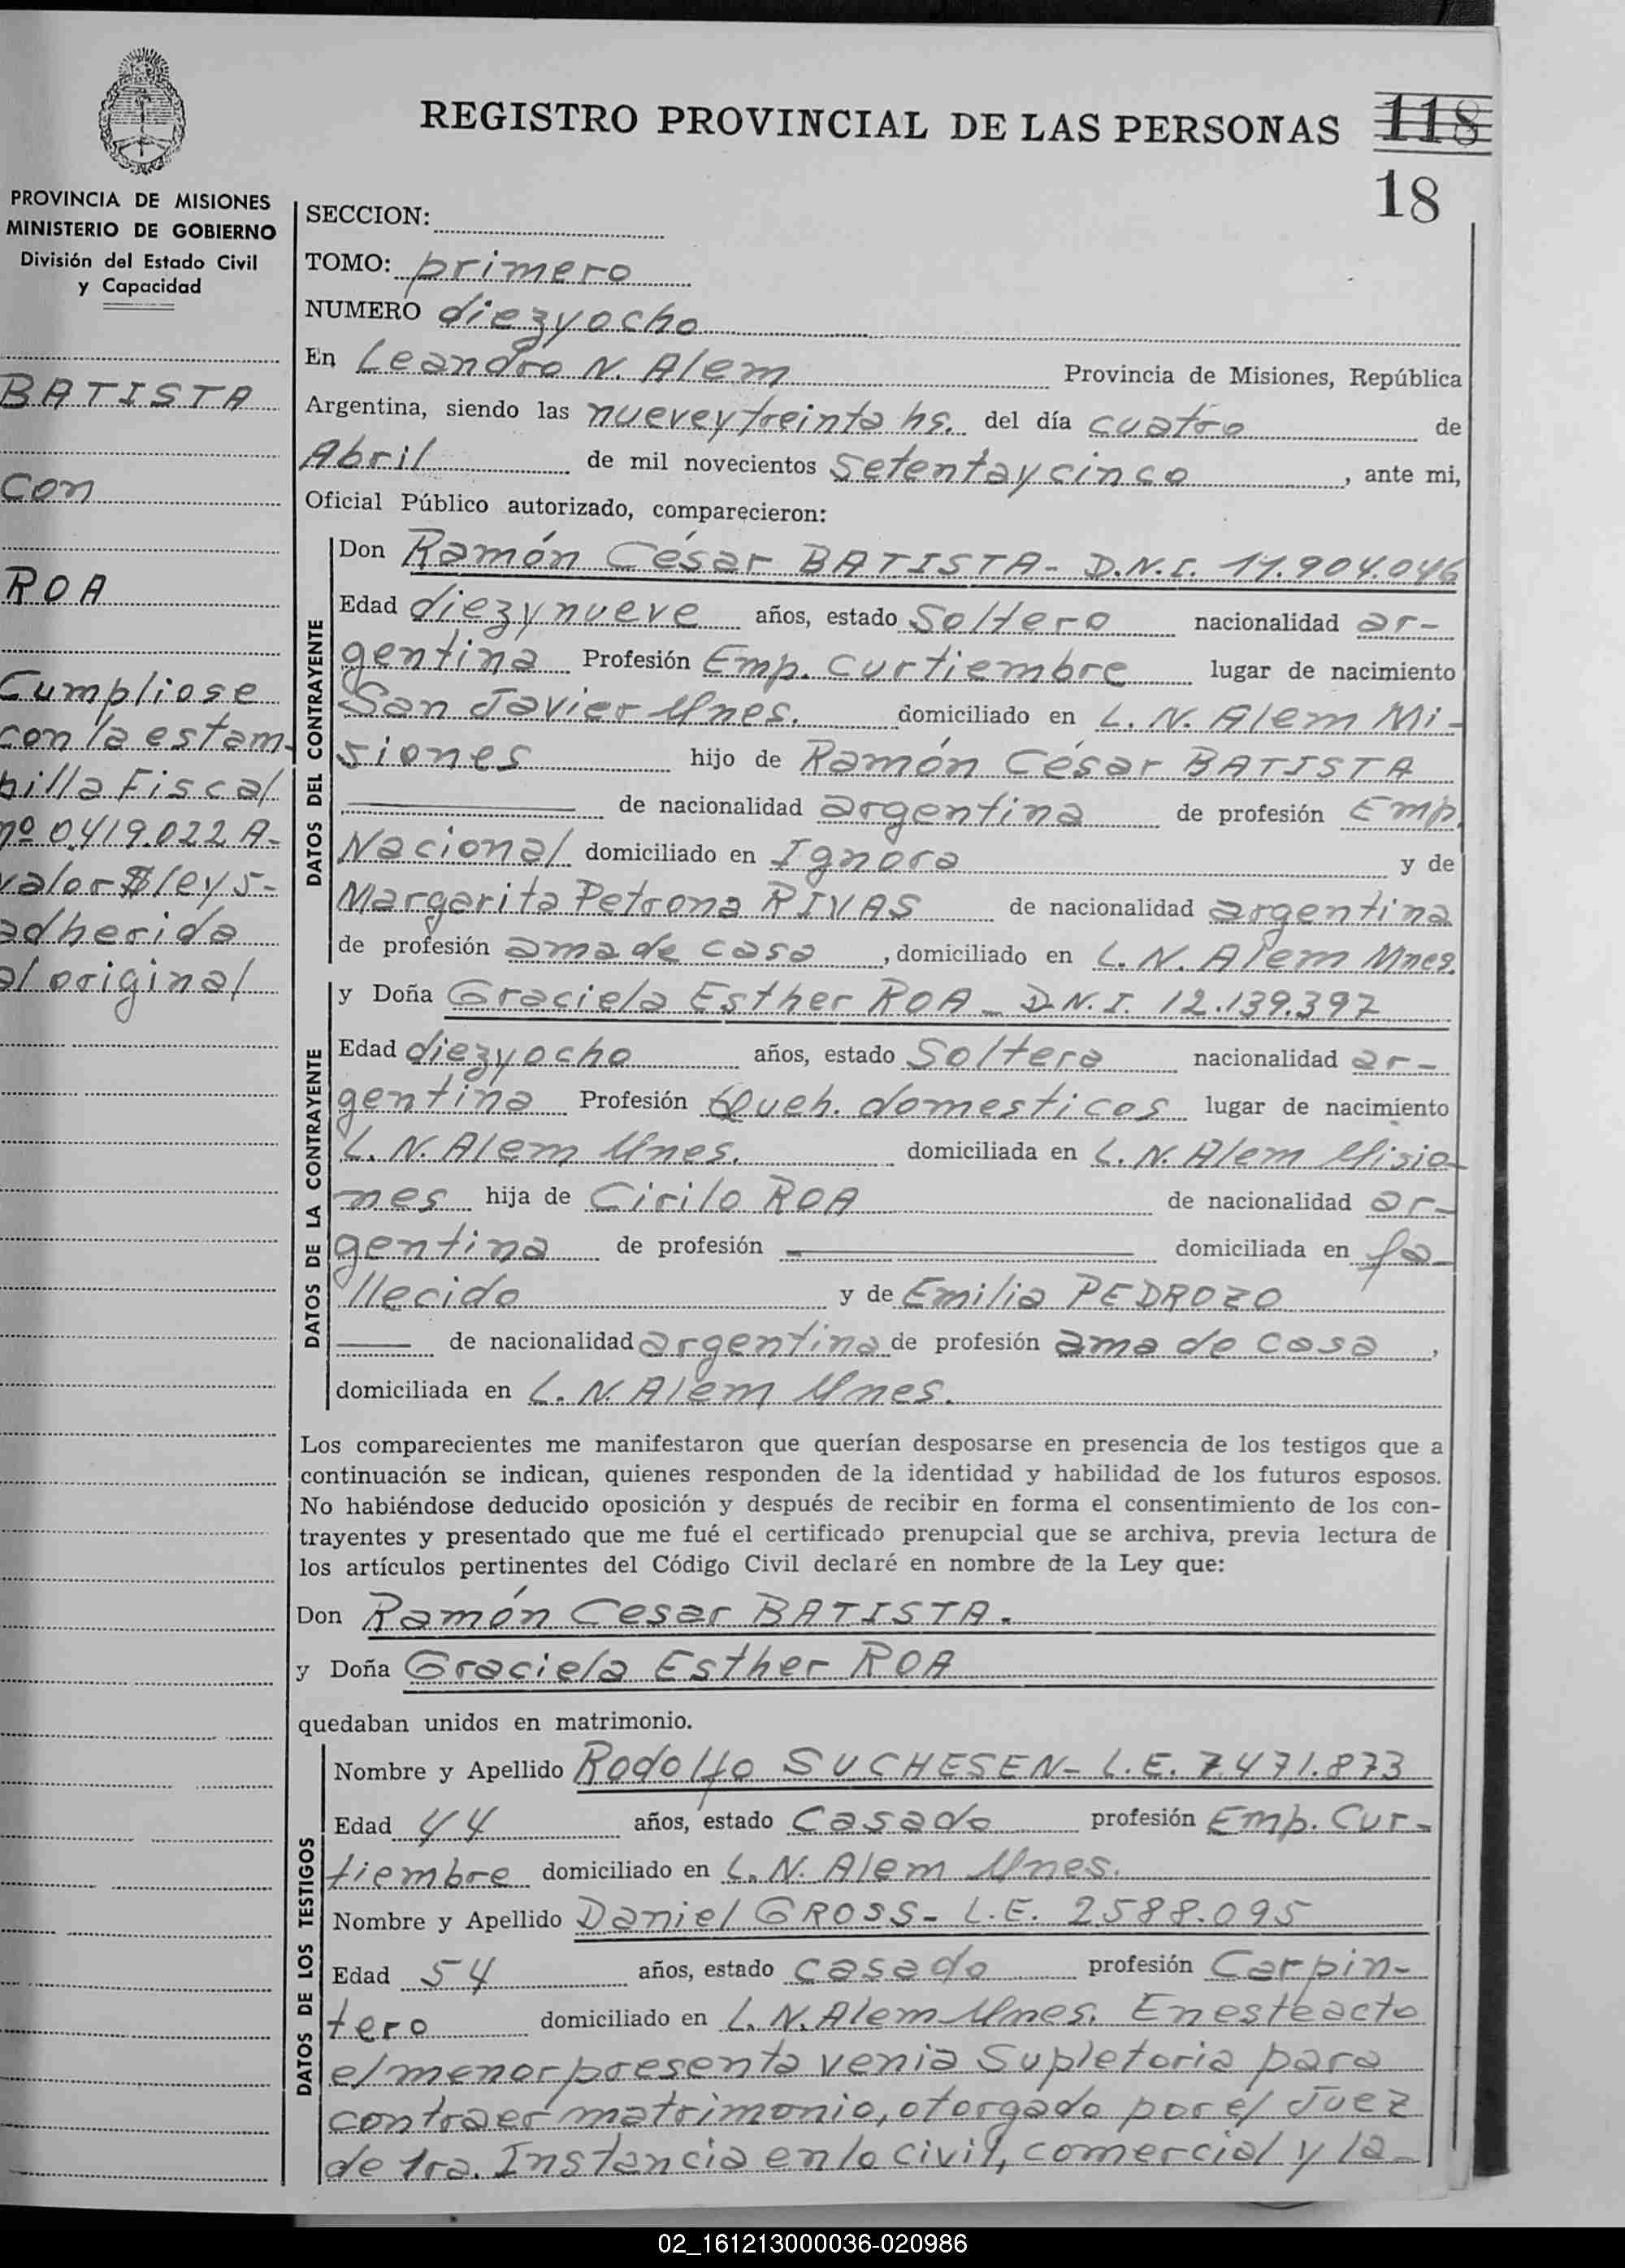 REGISTRO PROVINCIAL DE LAS PERSONAS
118
18
PROVINCIA DE MISIONES
MINISTERIO DE GOBIERNO
División del Estado Civil
y Capacidad
BATISTA
con
ROA
Cumpliose
con la estam-
pilla Fiscal
nº 0.419.022 A-
valor $ ley 5-
adherida
al original
SECCION:
TOMO: primero
NUMERO diez y ocho
En Leandro N. Alem Provincia de Misiones, República
Argentina, siendo las nueve y treinta hs. del día cuatro de
Abril de mil novecientos setenta y cinco, ante mi,
Oficial Público autorizado, comparecieron:
DATOS DEL CONTRAYENTE
Don Ramón César BATISTA- D.N.I. 11.904.046
Edad diez y nueve años, estado Soltero nacionalidad ar-
gentina Profesión Emp. Curtiembre lugar de nacimiento
San Javier Mnes. domiciliado en L. N. Alem Mi-
siones hijo de Ramón César BATISTA
de nacionalidad argentina de profesión Emp.
Nacional domiciliado en Ignora y de
Margarita Petrona RIVAS de nacionalidad argentina
de profesión ama de casa, domiciliado en L. N. Alem Mnes.
DATOS DE LA CONTRAYENTE
y Doña Graciela Esther ROA - D.N.I. 12.139.397
Edad diez y ocho años, estado Soltera nacionalidad ar-
gentina Profesión Queh. domesticos lugar de nacimiento
L. N. Alem Mnes. domiciliada en L. N. Alem Misio-
nes hija de Cirilo ROA de nacionalidad ar-
gentina de profesión domiciliada en fa-
llecido y de Emilia PEDROZO
de nacionalidad argentina de profesión ama de casa,
domiciliada en L. N. Alem Mnes.
Los comparecientes me manifestaron que querían desposarse en presencia de los testigos que a
continuación se indican, quienes responden de la identidad y habilidad de los futuros esposos.
No habiéndose deducido oposición y después de recibir en forma el consentimiento de los con-
trayentes y presentado que me fué el certificado prenupcial que se archiva, previa lectura de
los artículos pertinentes del Código Civil declaré en nombre de la Ley que:
Don Ramón Cesar BATISTA.
y Doña Graciela Esther ROA
quedaban unidos en matrimonio.
DATOS DE LOS TESTIGOS
Nombre y Apellido Rodolfo SUCHESEN- L.E. 7.471.873
Edad 44 años, estado Casado profesión Emp. Cur-
tiembre domiciliado en L. N. Alem Mnes.
Nombre y Apellido Daniel GROSS- L.E. 2.588.095
Edad 54 años, estado casado profesión Carpin-
tero domiciliado en L. N. Alem Mnes. En este acto
el menor presenta venia Supletoria para
contraer matrimonio, otorgado por el Juez
de 1ra. Instancia en lo civil, comercial y la-
02_161213000036-020986